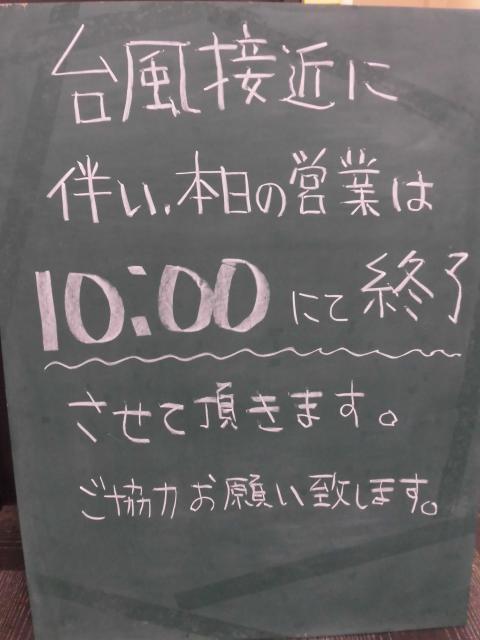 台風接近に
伴い、本日の営業は
10:00 にて終了
させて頂きます。
ご協力お願い致します。